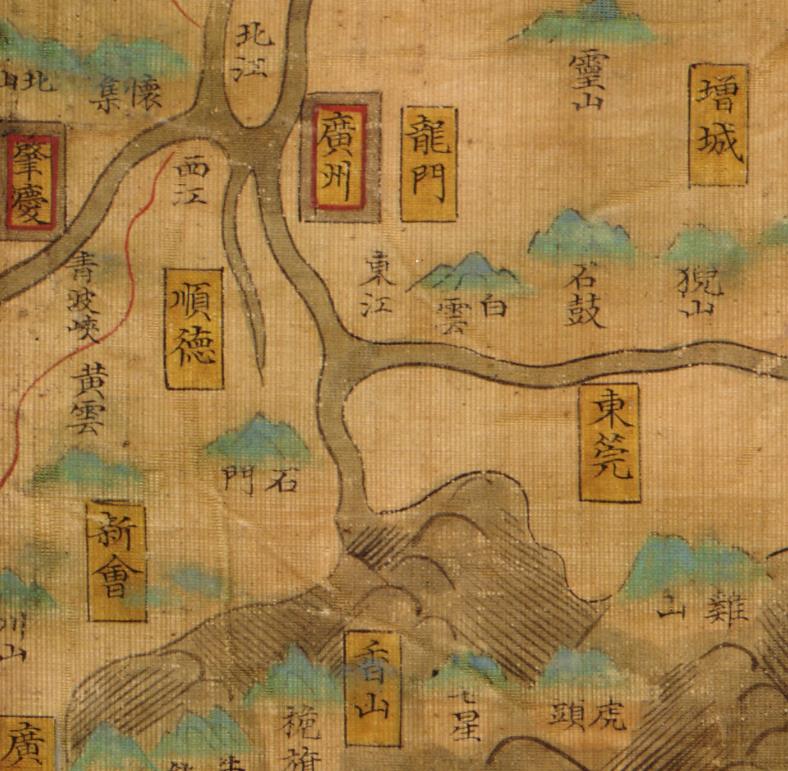 北江
靈山
增城
北山
懷集
廣州
龍門
肇慶
西江
青波峽
順德
東江
白雲
石鼓
猊山
黃雲
東筦
石門
新會
雞山
山
香山
七星
虎頭
梲旗
廣